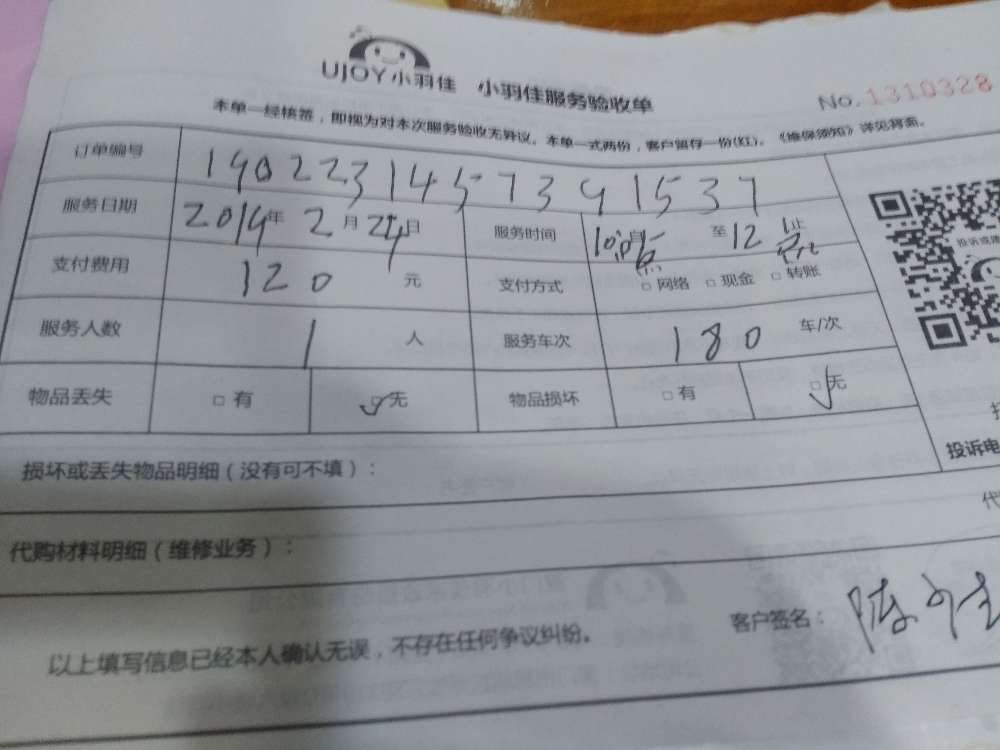 UJOY小羽佳 小羽佳服务验收单
No.1310328
本单一经核签，即视为对本次服务验收无异议。本单一式两份，客户留存一份(红)。《维保须知》详见背面。
订单编号 1902231457391537
服务日期 2019年 2月 24日 服务时间 10:0 自 点 至 12 止
支付费用 120 元 支付方式 □网络 □现金 □转账
服务人数 1 人 服务车次 180 车/次
物品丢失 □有 □无 物品损坏 □有 □无
投诉电
损坏或丢失物品明细（没有可不填）：
代
代购材料明细（维修业务）：
客户签名：陈
以上填写信息已经本人确认无误，不存在任何争议纠纷。